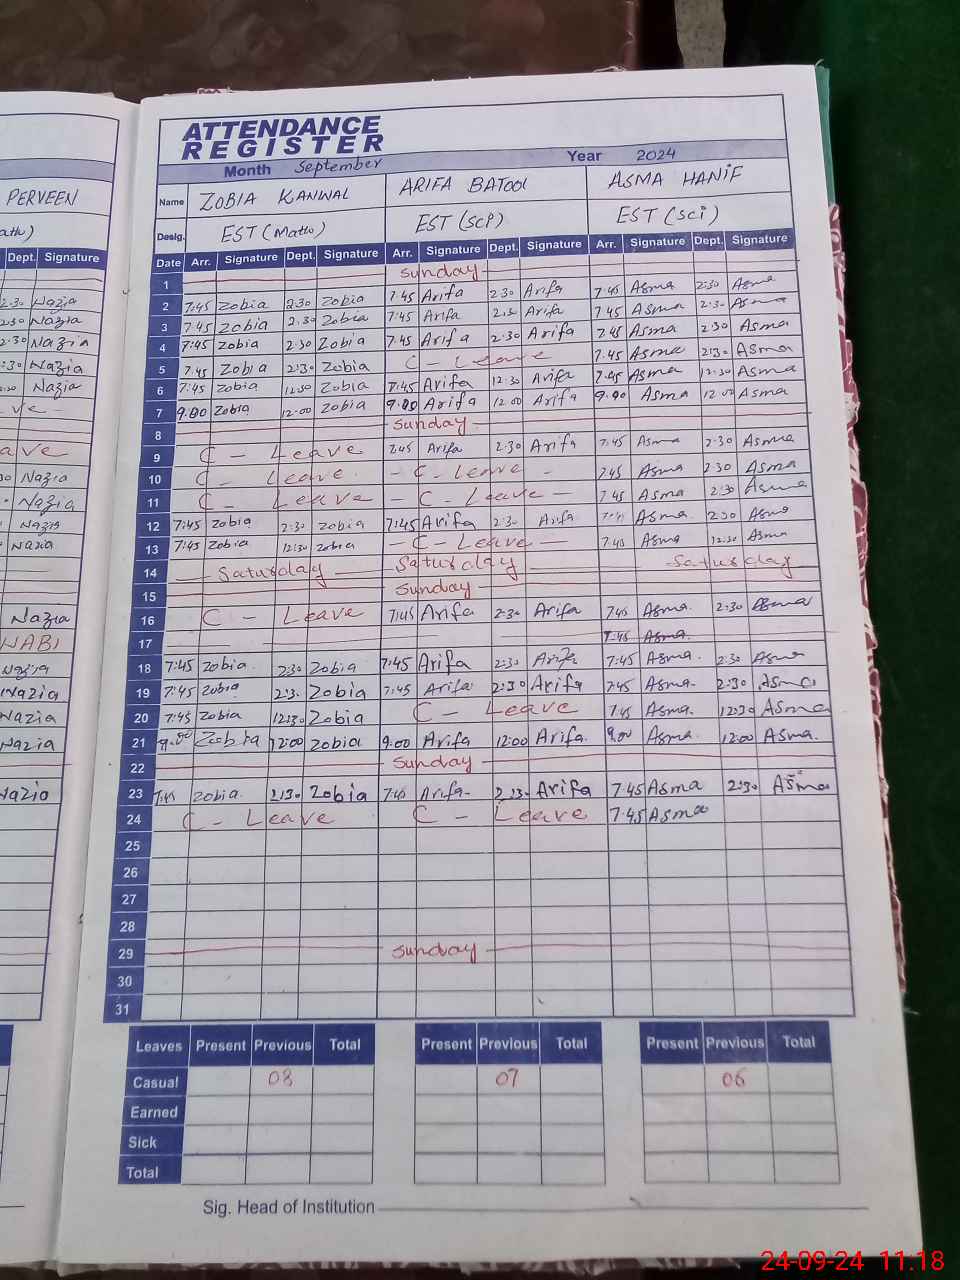 PERVEEN
Dept. Signature
2:30 Nazia
2:30 Nazia
2:30 Nazia
:30 Nazia
Nazia
ve -
ave
Nazia
Nazia
Nazia
Nazia
Nazia
NABI
Nazia
Nazia
Nazia
Nazia
Nazia
ATTENDANCE
REGISTER
Month September Year 2024
Name ZOBIA KANWAL ARIFA BATOOL ASMA HANIF
Desig. EST (Math) EST (SCI) EST (Sci)
Date Arr. Signature Dept. Signature Arr. Signature Dept. Signature Arr. Signature Dept. Signature
1 Sunday
2 7:45 Zobia 2:30 Zobia 7:45 Arifa 2:30 Arifa 7:45 Asma 2:30 Asma
3 7:45 Zobia 2:30 Zobia 7:45 Arifa 2:30 Arifa 7:45 Asma 2:30 Asma
4 7:45 Zobia 2:30 Zobia 7:45 Arifa 2:30 Arifa 7:45 Asma 2:30 Asma
5 7:45 Zobia 2:30 Zobia C - Leave 7:45 Asma 2:30 Asma
6 7:45 Zobia 12:30 Zobia 7:45 Arifa 12:30 Arifa 7:45 Asma 12:30 Asma
7 9:00 Zobia 12:00 Zobia 9:00 Arifa 12:00 Arifa 9:00 Asma 12:00 Asma
8 Sunday
9 C - Leave 7:45 Arifa 2:30 Arifa 7:45 Asma 2:30 Asma
10 C - Leave - C - Leave - 7:45 Asma 2:30 Asma
11 C - Leave - C - Leave - 7:45 Asma 2:30 Asma
12 7:45 Zobia 2:30 Zobia 7:45 Arifa 2:30 Arifa 7:45 Asma 2:30 Asma
13 7:45 Zobia 12:30 Zobia - C - Leave - 7:45 Asma 12:30 Asma
14 Saturday Saturday Saturday
15 Sunday
16 C - Leave 7:45 Arifa 2:30 Arifa 7:45 Asma 2:30 Asma
17 7:45 Asma
18 7:45 Zobia 2:30 Zobia 7:45 Arifa 2:30 Arifa 7:45 Asma 2:30 Asma
19 7:45 Zobia 2:30 Zobia 7:45 Arifa 2:30 Arifa 7:45 Asma 2:30 Asma
20 7:45 Zobia 12:30 Zobia C - Leave 7:45 Asma 12:30 Asma
21 9:00 Zobia 12:00 Zobia 9:00 Arifa 12:00 Arifa 9:00 Asma 12:00 Asma
22 Sunday
23 7:45 Zobia 2:30 Zobia 7:45 Arifa 2:30 Arifa 7:45 Asma 2:30 Asma
24 C - Leave C - Leave 7:45 Asma
25
26
27
28
29 Sunday
30
31
Leaves Present Previous Total Present Previous Total Present Previous Total
Casual 08 07 06
Earned
Sick
Total
Sig. Head of Institution
24-09-24 11:18